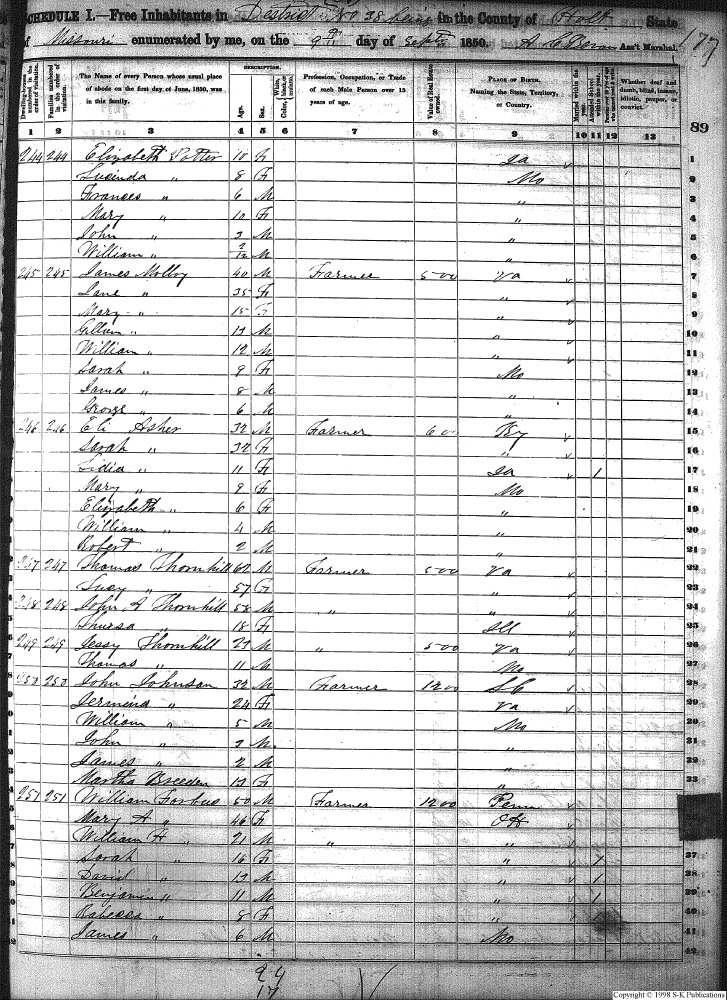 SCHEDULE I.—Free Inhabitants in District No 38 being in the County of Holt State
of Missouri enumerated by me, on the 9th day of Sept 1850. Ass't Marshal. 177
DESCRIPTION.
Dwelling-houses numbered in the order of visitation.
Families numbered in the order of visitation.
The Name of every Person whose usual place of abode on the first day of June, 1850, was in this family.
Age.
Sex.
Color, White, black, or mulatto.
Profession, Occupation, or Trade of each Male Person over 15 years of age.
Value of Real Estate owned.
PLACE OF BIRTH. Naming the State, Territory, or Country.
Married within the year.
Attended School within the year.
Whether deaf and dumb, blind, insane, idiotic, pauper, or convict.
1 2 3 4 5 6 7 8 9 10 11 12 13
89
244 244 Elizabeth Potter 10 F Ia 1
Lucinda " 8 F Mo 2
Frances " 6 M " 3
Mary " 10 F " 4
John " 3 M " 5
William " 2/12 M " 6
245 245 James Molloy 40 M Farmer 500 Va 7
Jane " 35 F " 8
Mary " 15 F " 9
" 13 M " 10
William " 12 M " 11
Sarah " 9 F Mo 12
James " 8 M " 13
George " 6 M " 14
246 246 Eli Asher 32 M Farmer 600 Ky 15
Sarah " 32 F " 16
Lidia " 11 F Ia 1 17
Mary " 9 F Mo 18
Elizabeth " 6 F " 19
William " 4 M " 20
Robert " 2 M " 21
247 247 Thomas Thornhill 62 M Farmer 500 Va 22
Lucy " 57 F " 23
248 248 John A Thornhill 58 M " " 24
Thursa " 18 F Ill 25
249 249 Jessy Thornhill 23 M " 500 Va 26
Thomas " 11 M Mo 27
250 250 John Johnson 32 M Farmer 1200 S C 28
Jermina " 24 F Va 29
William " 5 M Mo
John " 3 M " 31
James " 2 M " 32
Martha Breeden 13 F " 33
251 251 William Forbus 50 M Farmer 1200 Penn
Mary A " 46 F OH
William H " 21 M " "
Sarah " 16 F " 1 37
David " 13 M " 1 38
Benjamin " 11 M " 1 39
Rabecca " 8 F " 40
James " 6 M Mo 41
42
94
17
Copyright © 1998 S-K Publications